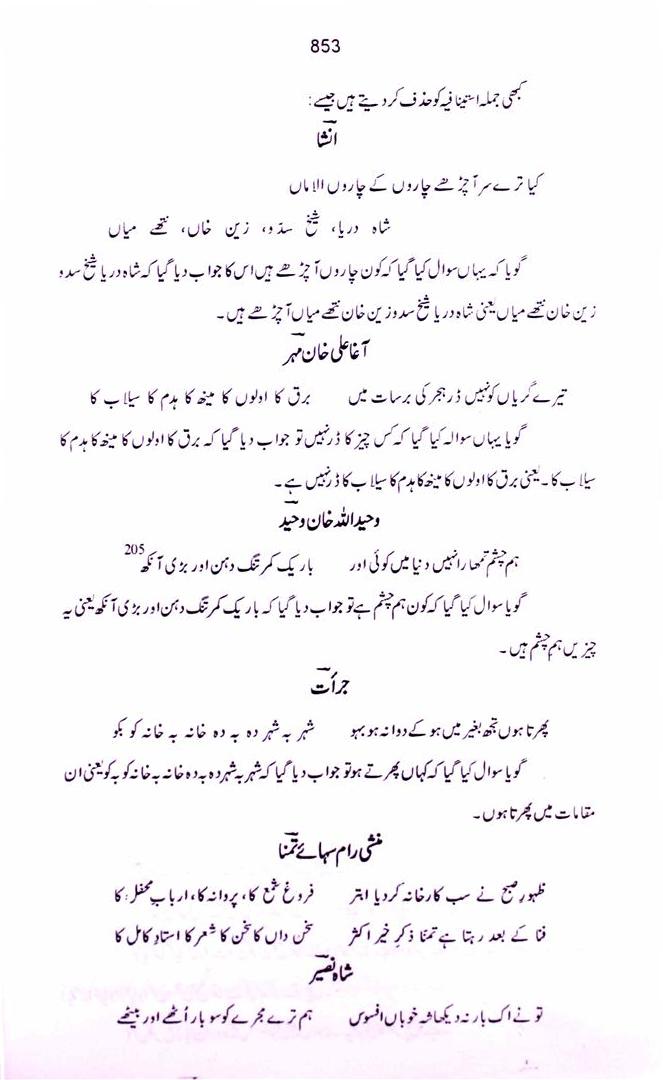 853
کبھی جملہ استینافیہ کو حذف کر دیتے ہیں جیسے:
انشا
کیا ترے سر آ چڑھے چاروں کے چاروں الاماں
شاہ دریا، شیخ سدّو، زین خاں، ننھے میاں
گویا کہ یہاں سوال کیا گیا کہ کون چاروں آ چڑھے ہیں اس کا جواب دیا گیا کہ شاہ دریا شیخ سدو
زین خان ننھے میاں یعنی شاہ دریا شیخ سدو زین خان ننھے میاں آ چڑھے ہیں۔
آغا علی خان مہر
تیرے گریاں کو نہیں ڈر ہجر کی برسات میں برق کا اولوں کا مینھ کا ہدم کا سیلاب کا
گویا یہاں سوالہ کیا گیا کہ کس چیز کا ڈر نہیں تو جواب دیا گیا کہ برق کا اولوں کا مینھ کا ہدم کا
سیلاب کا۔ یعنی برق کا اولوں کا مینھ کا ہدم کا سیلاب کا ڈر نہیں ہے۔
وحید اللہ خان وحید
ہم چشم تمھارا نہیں دنیا میں کوئی اور باریک کمر تنگ دہن اور بڑی آنکھ 205
گویا سوال کیا گیا کہ کون ہم چشم ہے تو جواب دیا گیا کہ باریک کمر تنگ دہن اور بڑی آنکھ یعنی یہ
چیزیں ہم چشم ہیں۔
جرأت
پھرتا ہوں تجھ بغیر میں ہو کے دوانہ ہو بہو شہر بہ شہر دہ بہ دہ خانہ بہ خانہ کو بکو
گویا سوال کیا گیا کہ کہاں پھرتے ہو تو جواب دیا گیا کہ شہر بہ شہر دہ بہ دہ خانہ بہ خانہ کو بہ کو یعنی ان
مقامات میں پھرتا ہوں۔
منشی رام سہائے تمنا
ظہورِ صبح نے سب کارخانہ کردیا ابتر فروغِ شمع کا، پروانہ کا، اربابِ محفل کا
فنا کے بعد رہتا ہے تمنا ذکرِ خیر اکثر سخن داں کا سخن کا شعر کا استادِ کامل کا
شاہ نصیر
تو نے اک بار نہ دیکھا شہِ خوباں افسوس ہم ترے مجرے کو سو بار اُٹھے اور بیٹھے